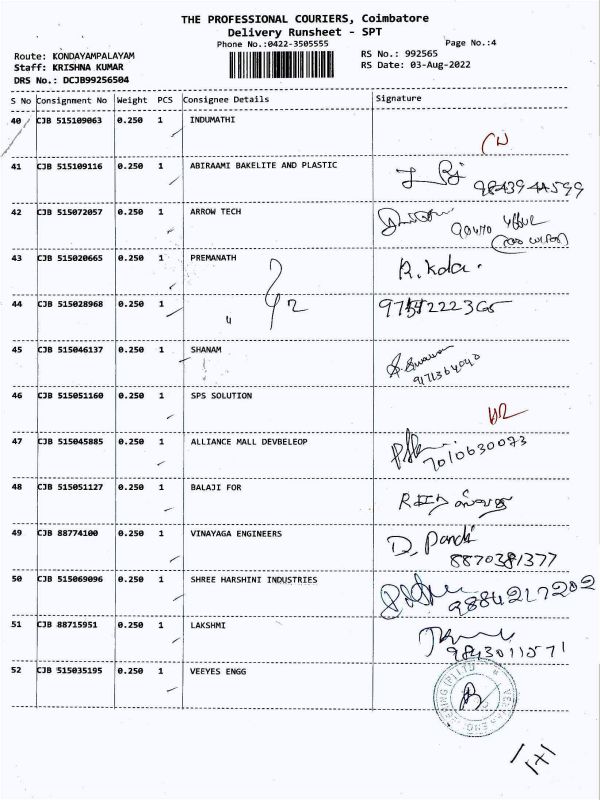 THE PROFESSIONAL COURIERS, Coimbatore
Delivery Runsheet - SPT
Phone No.:0422-3505555
Page No.:4
Route: KONDAYAMPALAYAM
RS No.: 992565
Staff: KRISHNA KUMAR
RS Date: 03-Aug-2022
DRS No.: DCJB99256504
S No Consignment No Weight PCS Consignee Details Signature
40 CJB 515109063 0.250 1 INDUMATHI
41 CJB 515109116 0.250 1 ABIRAAMI BAKELITE AND PLASTIC
98439 44599
42 CJB 515072057 0.250 1 ARROW TECH
43 CJB 515020665 0.250 1 PREMANATH R. Kola.
44 CJB 515028968 0.250 1 "
45 CJB 515046137 0.250 1 SHANAM
9171364040
46 CJB 515051160 0.250 1 SPS SOLUTION
47 CJB 515045885 0.250 1 ALLIANCE MALL DEVBELEOP
7010630073
48 CJB 515051127 0.250 1 BALAJI FOR
49 CJB 88774100 0.250 1 VINAYAGA ENGINEERS D. Pandi
8870381377
50 CJB 515069096 0.250 1 SHREE HARSHINI INDUSTRIES
9884217202
51 CJB 88715951 0.250 1 LAKSHMI
9843011571
52 CJB 515035195 0.250 1 VEEYES ENGG